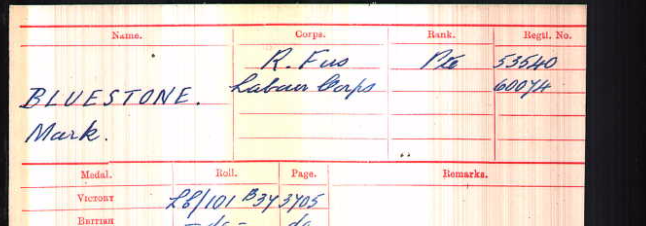 Name. Corps. Rank. Regtl. No.
R. Fus Pte 53540
BLUESTONE. Labour Corps 60074
Mark.
Medal. Roll. Page. Remarks.
VICTORY LB/101 B34 3705
BRITISH - do - do